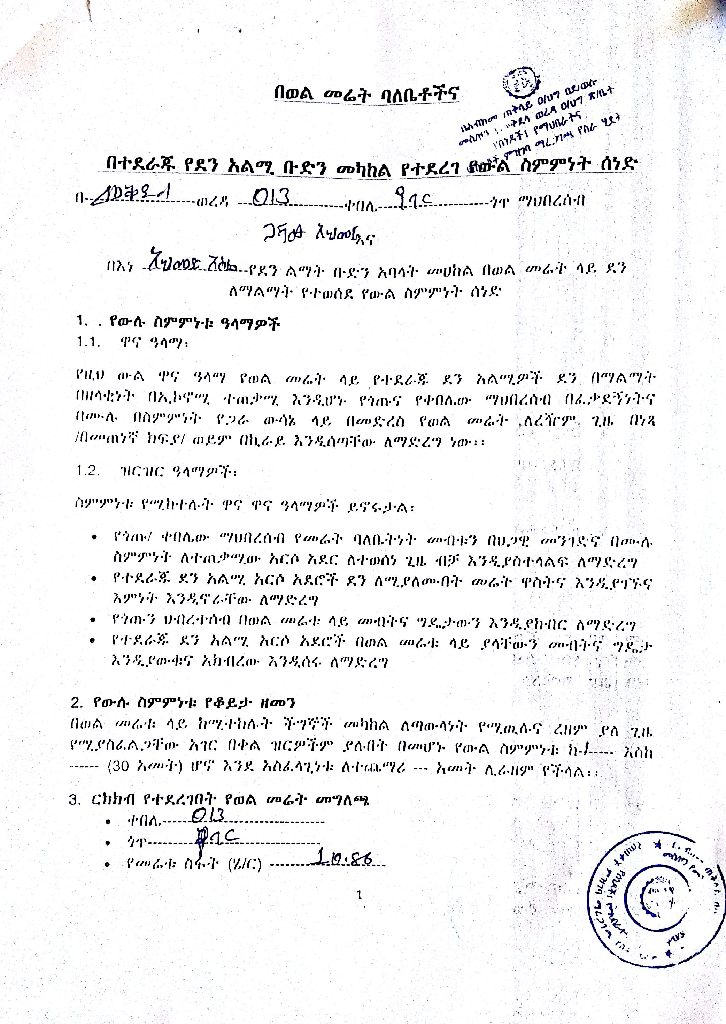 በወል መሬት ባለቤቶችና
በተደራጁ የደን አልሚ ቡድን መካከል የተደረገ የውል ስምምነት ሰነድ
በ- ወረዳ 013 ቀበሌ ጎጥ ማህበረሰብ
እና
በእነ አህመድ የደን ልማት ቡድን አባላት መሀከል በወል መሬት ላይ ደን
ለማልማት የተወሰደ የውል ስምምነት ሰነድ
1. . የውሉ ስምምነቱ ዓላማዎች
1.1. ዋና ዓላማ፡
የዚህ ውል ዋና ዓላማ የወል መሬት ላይ የተደራጁ ደን አልሚዎች ደን በማልማት
በዘላቂነት በኢኮኖሚ ተጠቃሚ እንዲሆኑ የጎጡና የቀበሌው ማህበረሰብ በፈቃደኝነትና
በሙሉ በስምምነት የጋራ ውሳኔ ላይ በመድረስ የወል መሬት ለረዥም ጊዜ በነጻ
/በመጠነኛ ክፍያ/ ወይም በኪራይ እንዲሰጣቸው ለማድረግ ነው፡፡
1.2. ዝርዝር ዓላማዎች፡
ስምምነቱ የሚከተሉት ዋና ዋና ዓላማዎች ይኖሩታል፡
• የጎጡ/ ቀበሌው ማህበረሰብ የመሬት ባለቤትነት መብቱን በህጋዊ መንገድና በሙሉ
ስምምነት ለተጠቃሚው አርሶ አደር ለተወሰነ ጊዜ ብቻ እንዲያስተላልፍ ለማድረግ
• የተደራጁ ደን አልሚ አርሶ አደሮች ደን ለሚያለሙበት መሬት ዋስትና እንዲያገኙና
እምነት እንዲኖራቸው ለማድረግ
• የጎጡን ህብረተሰብ በወል መሬቱ ላይ መብትና ግዴታውን እንዲያከብር ለማድረግ
• የተደራጁ ደን አልሚ አርሶ አደሮች በወል መሬቱ ላይ ያላቸውን መብትና ግዴታ
እንዲያውቁና አክብረው እንዲሰሩ ለማድረግ
2. የውሉ ስምምነቱ የቆይታ ዘመን
በወል መሬቱ ላይ ከሚተከሉት ችግኞች መካከል ለጣውላነት የሚዉሉና ረዘም ያለ ጊዜ
የሚያስፈልጋቸው አገር በቀል ዝርዎችም ያሉበት በመሆኑ የውል ስምምነቱ ከ-/----- እስከ
------ (30 አመት) ሆኖ እንደ አስፈላጊነቱ ለተጨማሪ --- አመት ሊራዘም የችላል፡፡
3. ርክክብ የተደረገበት የወል መሬት መግለጫ
• ቀበሌ 013
• ጎጥ
• የመሬቱ ስፋት (ሄ/ር) 10.86
1